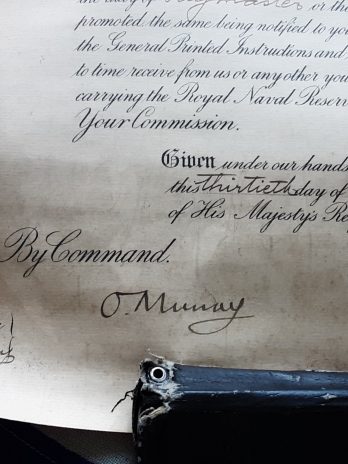 or the
promoted, the same being notified to you
the General Printed Instructions and
to time receive from us or any other you
carrying the Royal Naval Reserv
Your Commission.
Given under our hands
this thirtieth day of
of His Majesty's Re
By Command.
O. Murray